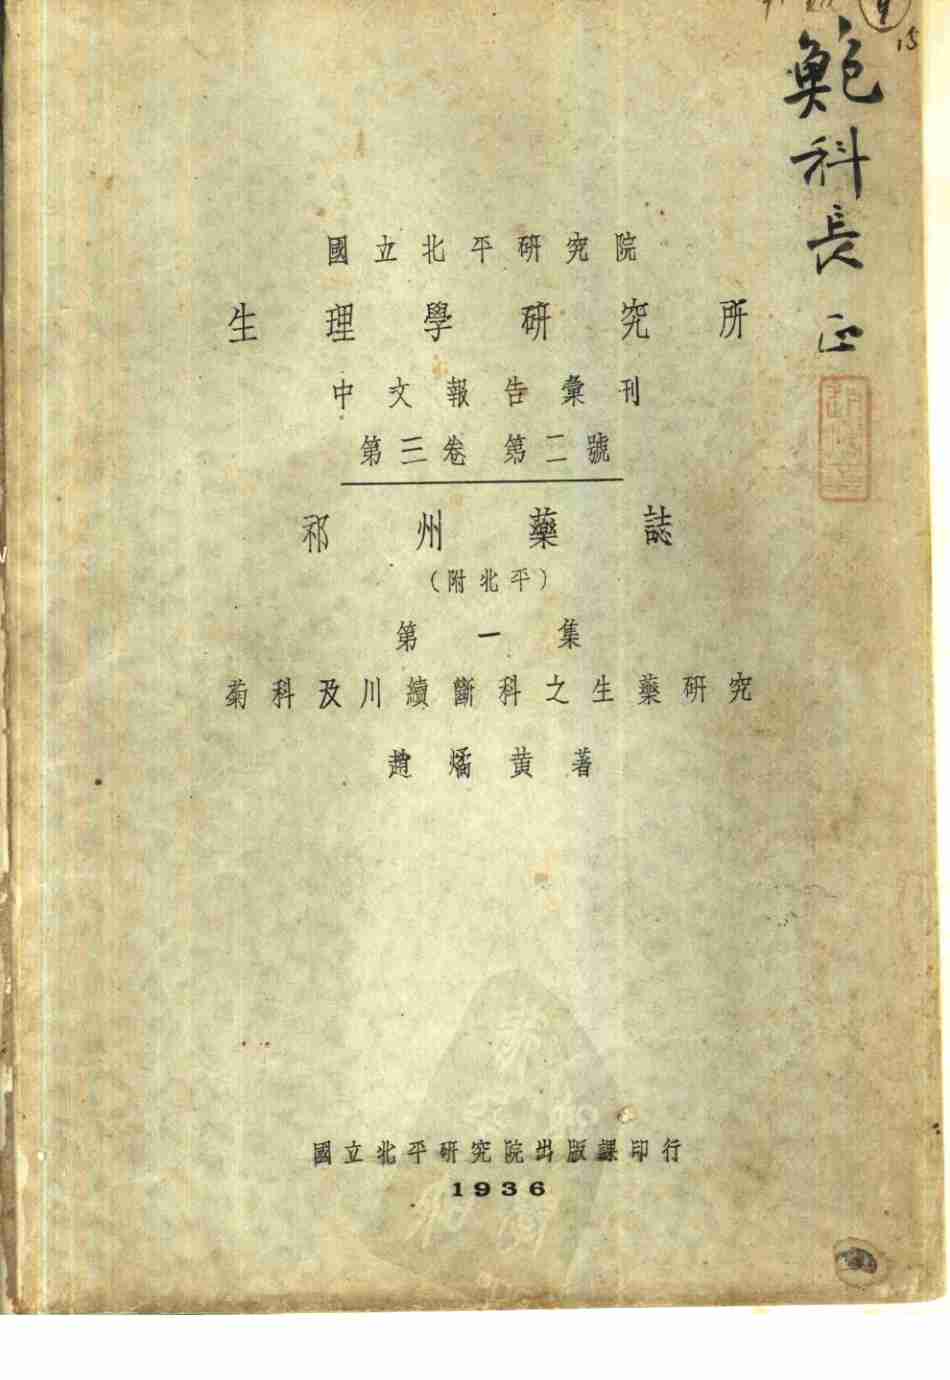 鮑科長正
國立北平研究院
生理學研究所
中文報告彙刊
第三卷 第二號
祁州藥誌
(附北平)
第一集
菊科及川續斷科之生藥研究
趙燏黄著
國立北平研究院出版課印行
1936